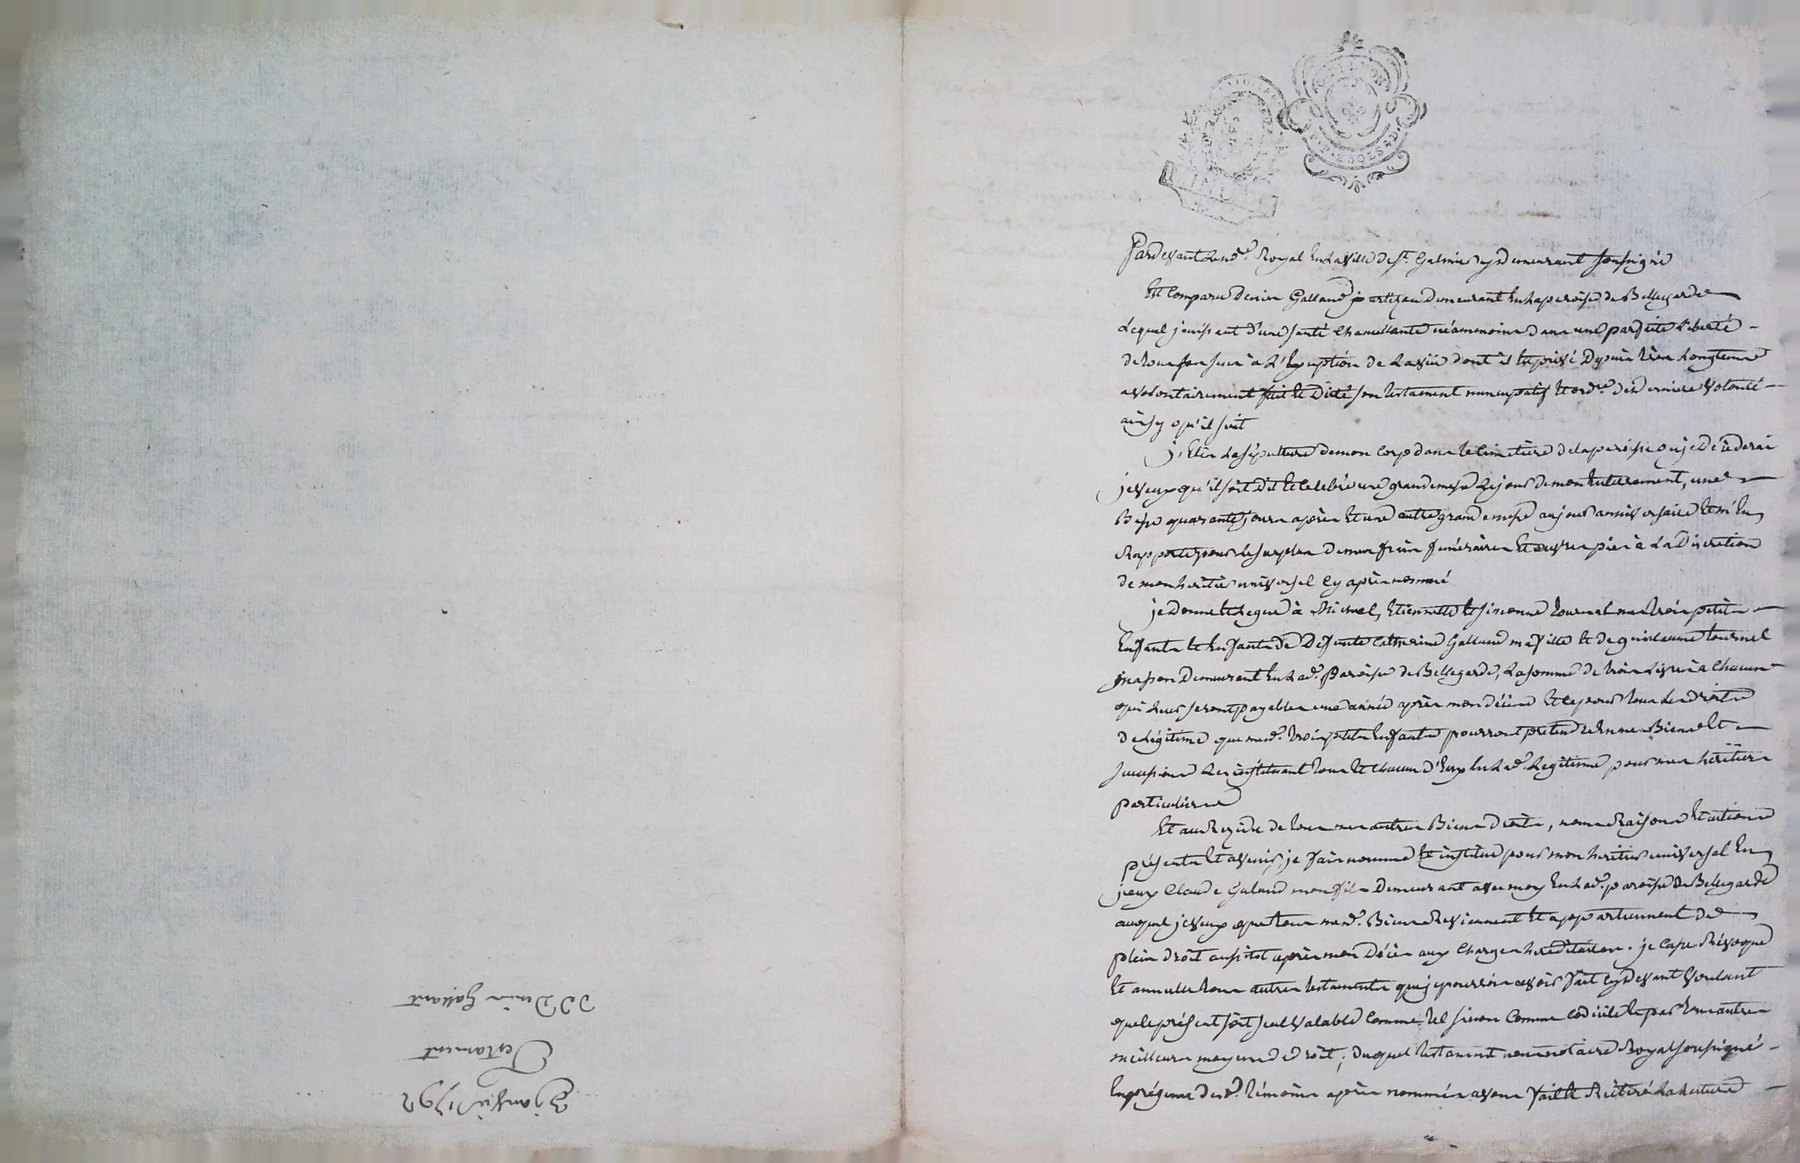 Pardevant le no.re Royal en la ville de St. Galmier y demeurant soussigné
Est comparu Denis Galland partizan demeurant en la paroisse de Bellegarde
Lequel jouissant d'une santé chancellante néammoins dans une parfaite liberté
de tous ses sens à l'exception de la vüe dont il est privé Depuis bien Longtems
a volontairement fait et Dicté son testament nuncupatif et ord.ce de derniere volonté
ainsy qu'il suit
j'Elis La sépulture de mon corp dans le cimetiere de la paroisse ou je Décéderai
je veux qu'il soit dit et celebré une grande messe Le jour de mon Enterrement, une
Basse quarante jours après et une autre grande messe au jour anniversaire et m'En
Rapporte pour le surplus de mes frais funéraires et œuvres pies à La Discretion
de mon heritier universel cy après nommé
je Donne et Legue à Michel, Etiennette et Simonne tournel mes trois petits
Enfants et Enfants de Défunte Catherine Galland ma fille et de Guillaume tournel
masson Demeurant En lad. Paroisse de Bellegarde, La somme de trois Livres à chacun
qui Leur seront payables une année après mon décès et ce pour tous les droits
de Légitime que mesd. trois petits Enfants pourront pretendre En mes Biens et
succession Les instituant tous et chacun d'Eux En lad. Legitime pour mes héritiers
particuliers
Et au Rezidu de tous mes autres Biens droits, noms Raisons et actions
présents et avenir, je fais nomme et institue pour mon heritier universel En
jeux Claude Galand mon fils Demeurant avec moy En lad. paroisse de Bellegarde
auquel je veux que tous mesd. Biens Reviennent et appartiennent de
plein droit aussitot après mon Décès aux charges hereditaires. je casse Révoque
Et annulle tous autres testaments que je pourrois avoir fait cy Devant Voulant
que le présent soit seul valable comme tel sinon comme codicile et par tous autres
meilleurs moyens de droit; Duquel testament nous notaire Royal soussigné
En présence des témoins après nommés avons fait et Réitéré la lecture
3 janvier 1792
Testament
de Denis Galland